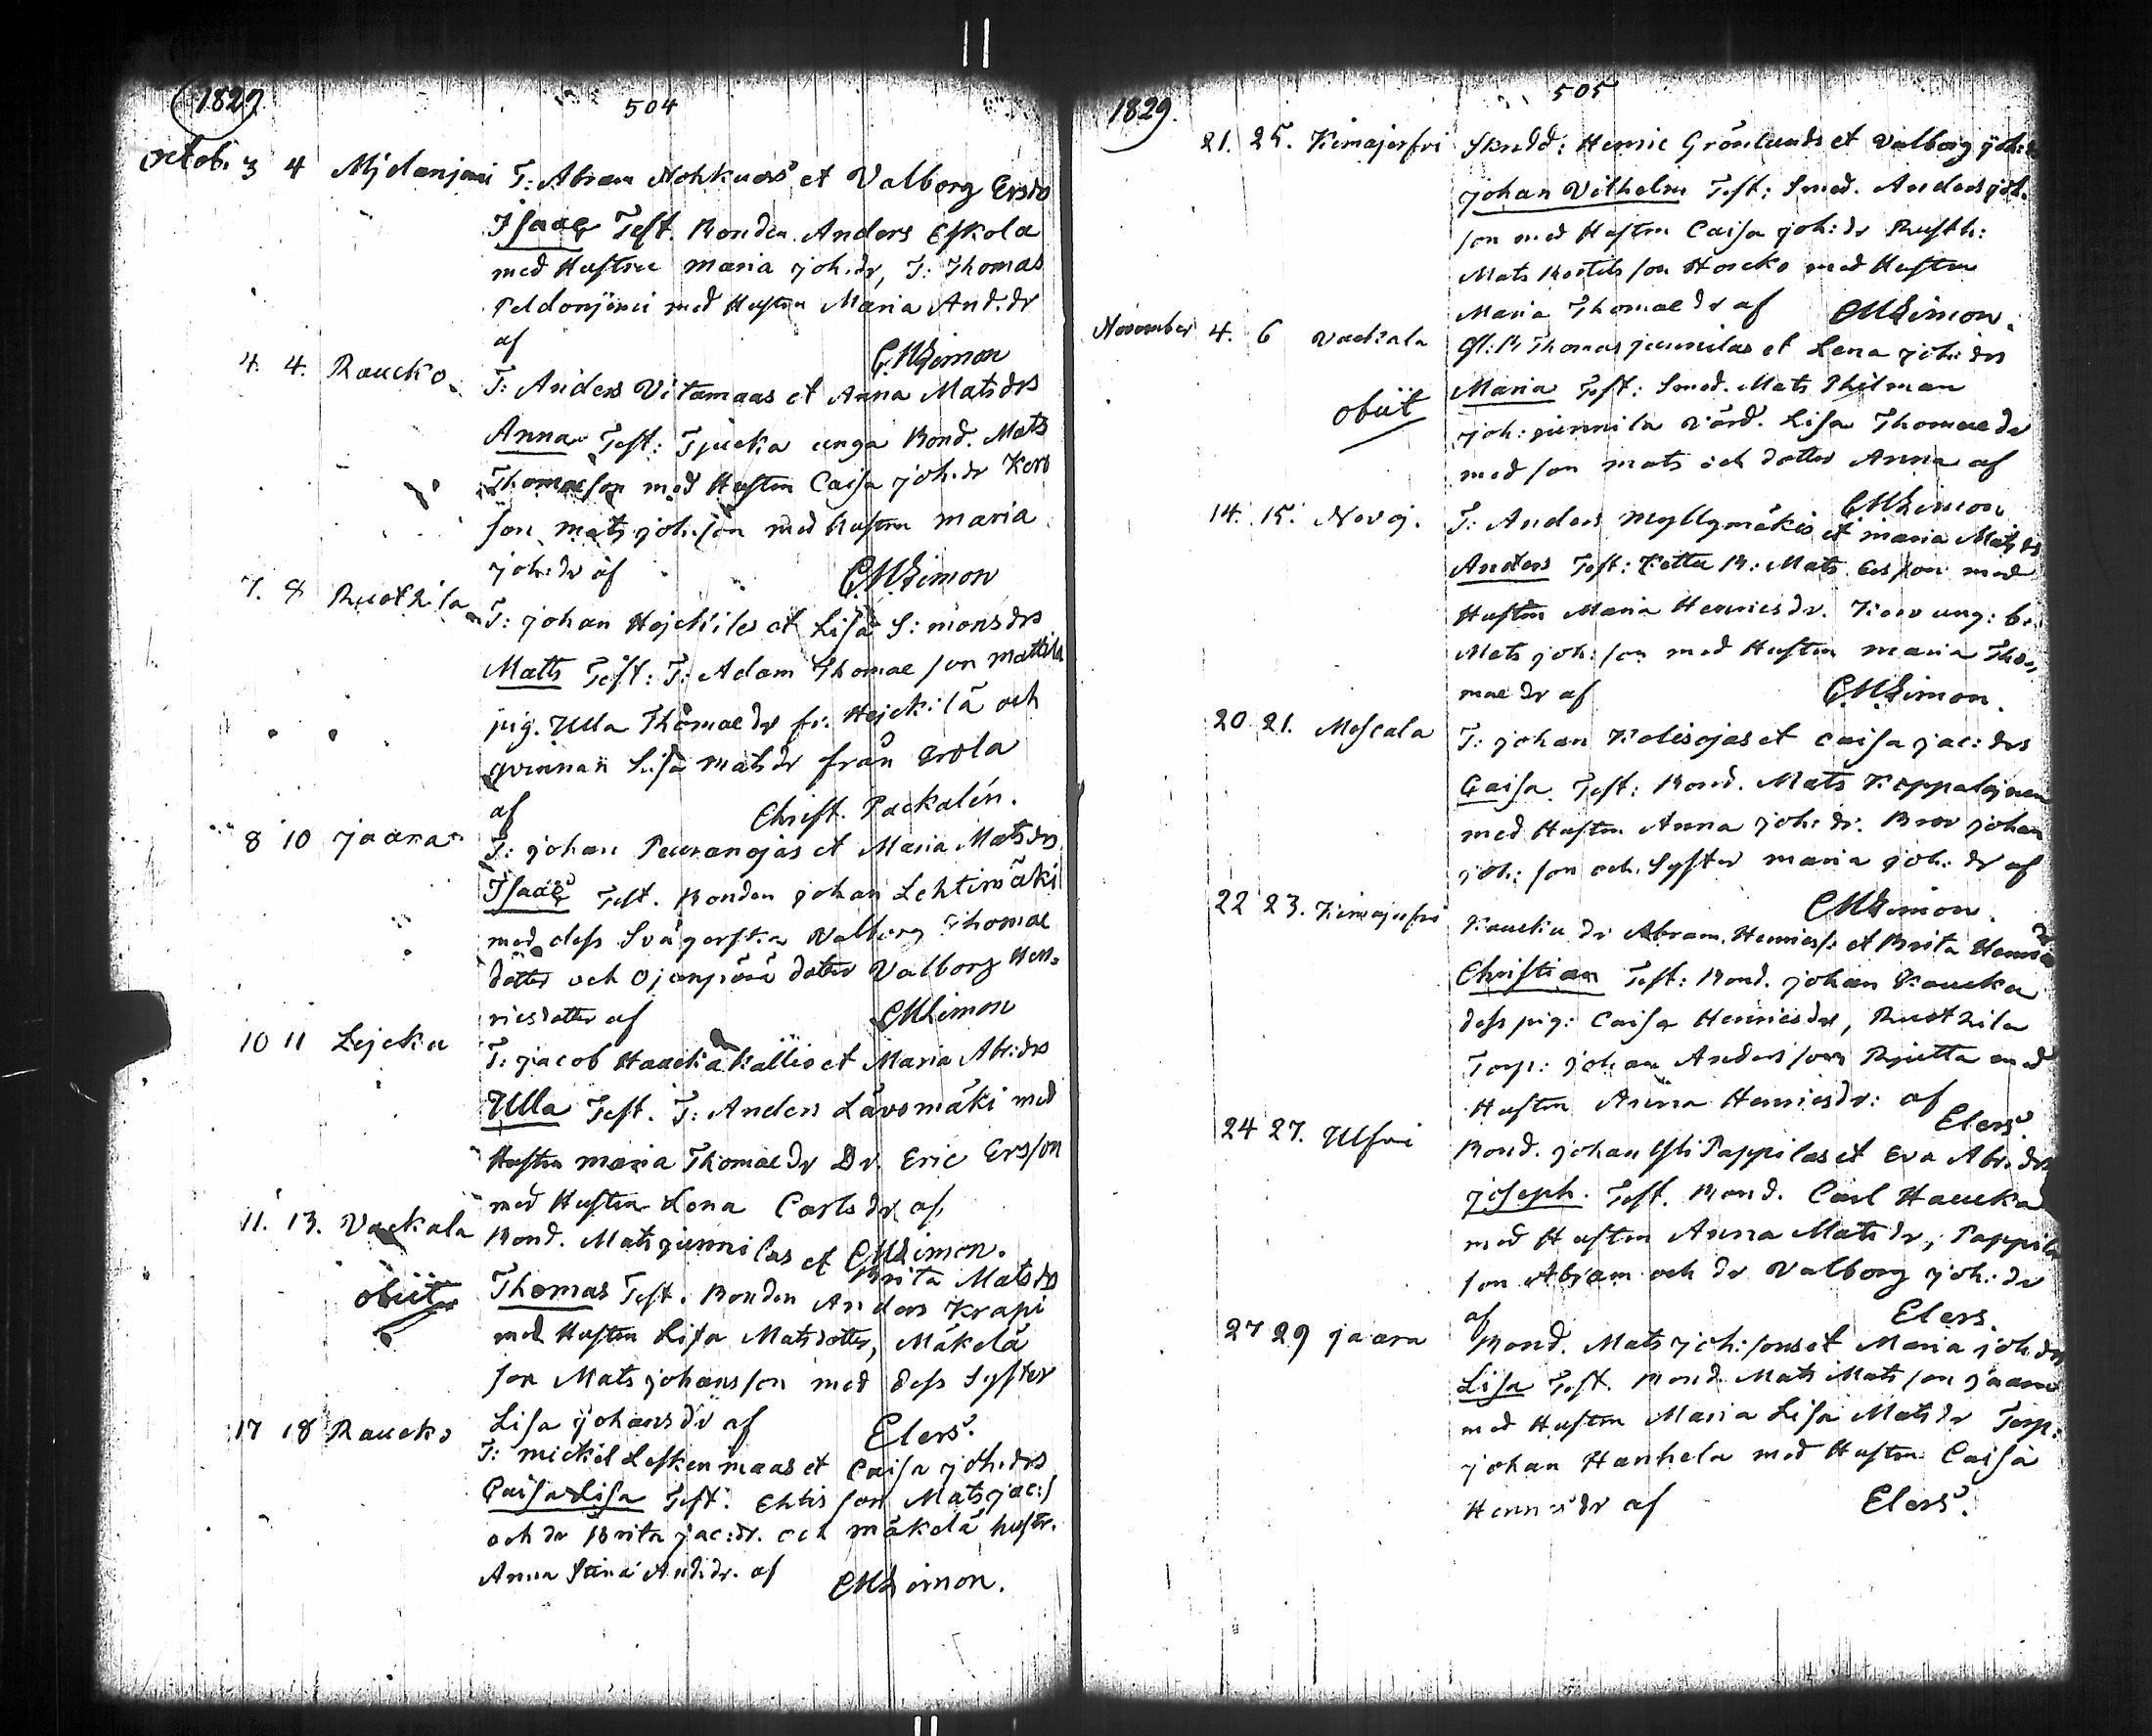 1829
504
octob. 3 4 Mjelanjemi T: Abram Nohkuars et Valborg Ersdr
Isaac Test. Bonden Anders Eskola
med Hustru maria joh:dr, T: Thomas
Peldonjemi med Hustru Maria And:dr
af CMLimon
4. 4. Raucko T: Anders Vitamaas et Anna Matsdrs
Anna Test: Tjucka unga Bond. Mats
Thomaeson med Hustru Caisa joh:dr
son mats joh:son med hustru maria
joh:dr af CMLimon
7. 8 Ruotzila T: johan Hejckiles et Lisa Simonsdrs
Matts Test: T: Adam Thomae son mattila
pig. Ulla Thomaedr fr. Hejckilä och
qvinnan Lisa matsdr från Erola
af Christ. Packalén.
8 10 jaara T: johan Peuranojas et Maria Matsdrs
Isaac Test. Bonden johan Lehtimäki
med dess Svägerska Valborg Thomae
dotter och Ojanperä dotter Valborg Hen-
ricsdotter af CMLimon
10 11 Lejcku T: jacob Hauckakallio et Maria Abr:drs
Ulla Test. T: Anders Lävomäki med
Hustru maria Thomaedr Dr. Eric Ersson
med Hustru Lena Carlsdr af
CMLimon.
11. 13. Vackala Bond. Mats junnilas et Brita Matsdrs
obiit Thomas Test. Bonden Anders Krapi
med Hustru Lisa Matsdotter, Mäkelä
son Mats johansson med dess Syster
Lisa johansdr af Elers.
17 18 Raucko T: mickel Leskenmaas et Caisa joh:drs
Caisa Lisa Test. Ehtis son Mats jac:s
och dr Brita jac:dr. och mäkelä hustr.
Anna Stina And:dr. af CMLimon.
1829.
505
21. 25. Kimajerfvi Skrädd: Henric Grönlunds et Valborg joh:
johan Vilhelm Test: Smed. Anders joh.
son med Hustru Caisa joh:dr Rusth:
Mats Bertels son Horcko med Hustru
Maria Thomaedr af CMLimon.
November 4. 6 Vackala Thomas junnilas et Lena joh:drs
obiit Maria Test: Smed. Mats Thilman
joh: junnila värd. Lisa Thomaedr
med son mats och dotter Anna af
CMLimon
14. 15. Novoj. T: Anders Myllymäkis et maria Matsdrs
Anders Test: Ketta B: Mats Ersson med
Hustru Maria Henricsdr. ung: b.
Mats joh:son med Hustru maria Tho-
maedr af CMLimon.
20 21. Moscala T: johan Kolisojas et caisa jac:drs
Caisa. Test: Bond. Mats Koppalojnen
med Hustru Anna joh:dr. Bror johan
joh:son och Syster maria joh:dr af
CMLimon.
22 23. Kimajerfvi Kaucku dr Abram Henricss et Brita Henricdr
Christian Test: Bond. johan Kaucka
dess pig: Caisa Henricsdr, Ruotzila
Torp: johan Andersson Rjutta med
Hustru Anna Henricsdr: af Elers.
24 27. Ulfvi Bond. johan Ofti Pappilas et Eva Abr:drs
joseph. Test. Bond. Carl Haucka
med Hustru Anna Matsdr, Pappila
son Abram och dr Valborg joh:dr
af Elers.
27 29 jaara Bond. Mats joh:sons et Maria joh:drs
Lisa Test. Bond. Mats Matsson jaara
med Hustru Maria Lisa Matsdr Torp:
johan Hanhela med Hustru Caisa
Henricsdr af Elers.